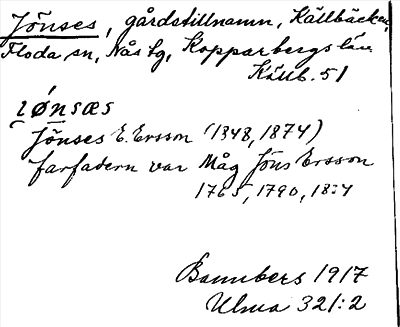 Jönses, gårdstillnamn, Källbäcken,
Floda sn, Nås tg, Kopparbergs län.
Källb. 51
ɩønsæs
Jönses E. Ersson (1848, 1874)
farfadern var Måg Jöns Ersson
1765, 1790, 18:4
Bannbers 1917
Ulma 321:2